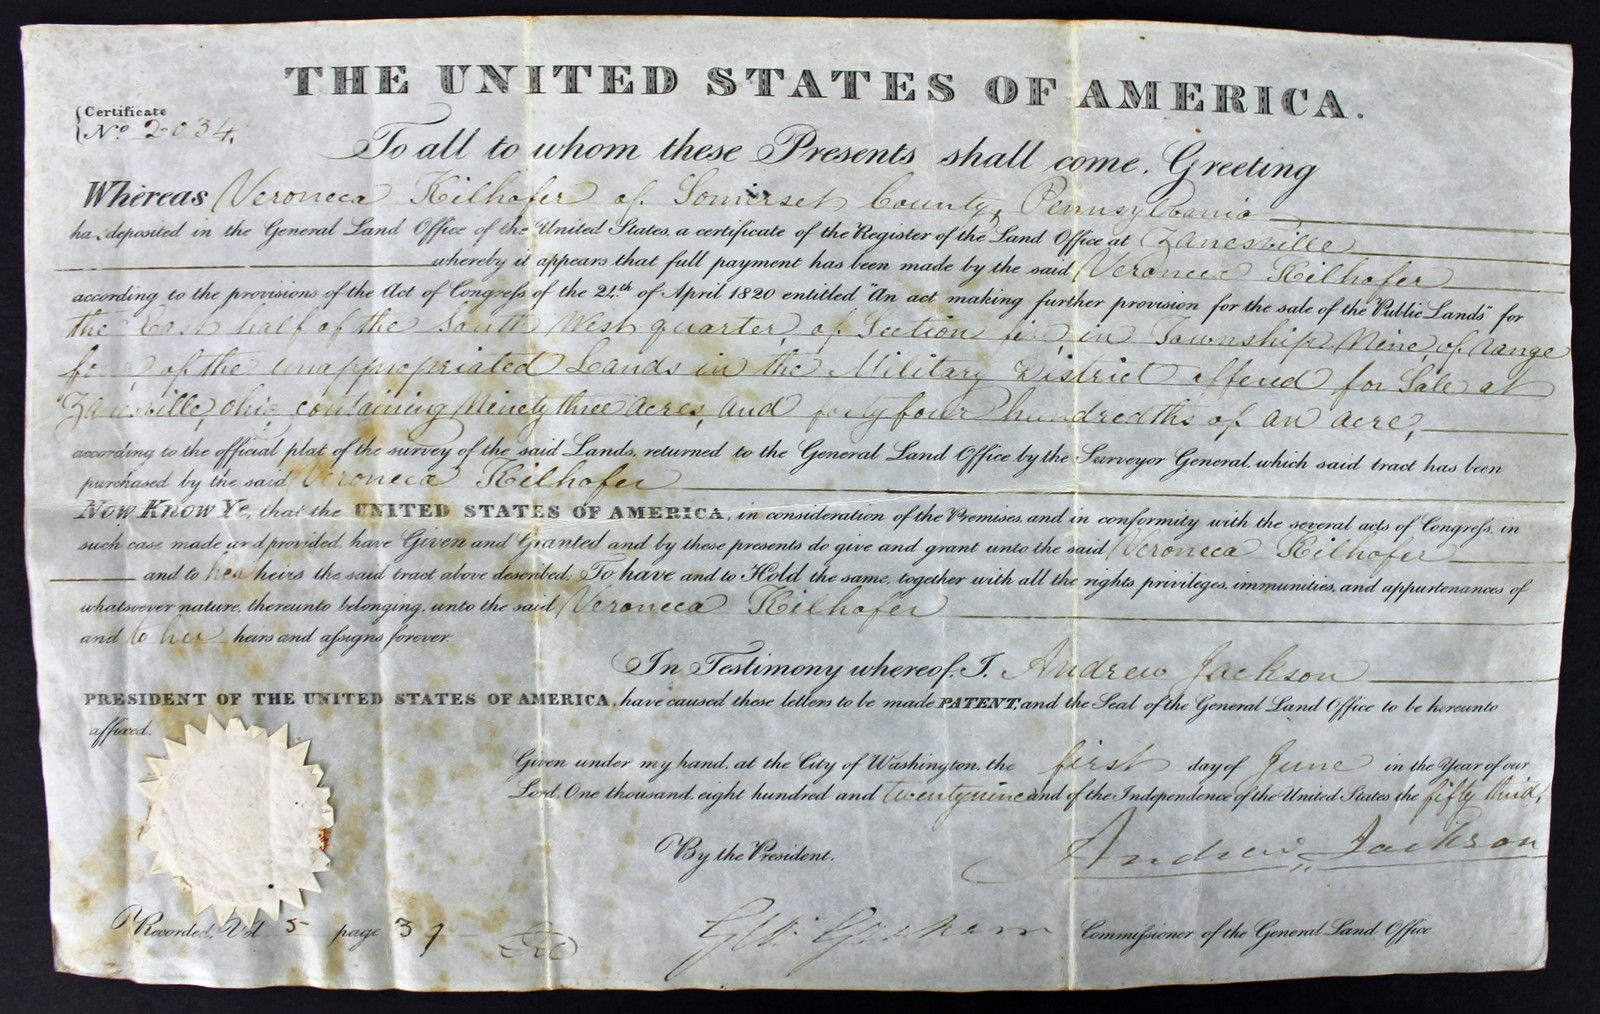 THE UNITED STATES OF AMERICA.
Certificate
No. 2034.
To all to whom these Presents shall come, Greeting
Whereas Veroneca Kilhofer of Somerset County, Pennsylvania
ha deposited in the General Land Office of the United States, a certificate of the Register of the Land Office at Zanesville
whereby it appears that full payment has been made by the said Veroneca Kilhofer
according to the provisions of the Act of Congress of the 24th of April 1820 entitled "An act making further provision for the sale of the Public Lands" for
the East half of the South West quarter, of Section in Township Nine, of range
of the unappropriated Lands in the Military District offered for Sale at
Zanesville, Ohio, containing Ninety three acres, and forty four hundredths of an acre,
according to the official plat of the survey of the said Lands, returned to the General Land Office by the Surveyor General, which said tract has been
purchased by the said Veroneca Kilhofer
Now Know Ye, that the UNITED STATES OF AMERICA, in consideration of the Premises, and in conformity with the several acts of Congress, in
such case made and provided, have Given and Granted and by these presents do give and grant unto the said Veroneca Kilhofer
and to her heirs the said tract above described: To have and to Hold the same, together with all the rights privileges, immunities, and appurtenances of
whatsoever nature, thereunto belonging, unto the said Veroneca Kilhofer
and to her heirs and assigns forever.
In Testimony whereof, I, Andrew Jackson
PRESIDENT OF THE UNITED STATES OF AMERICA, have caused these letters to be made PATENT, and the Seal of the General Land Office to be hereunto
affixed.
Given under my hand, at the City of Washington, the first day of June in the Year of our
Lord, One thousand, eight hundred and twentynine and of the Independence of the United States the fifty third,
Andrew Jackson
By the President.
Recorded, Vol 5 page 37
Graham Commissioner of the General Land Office